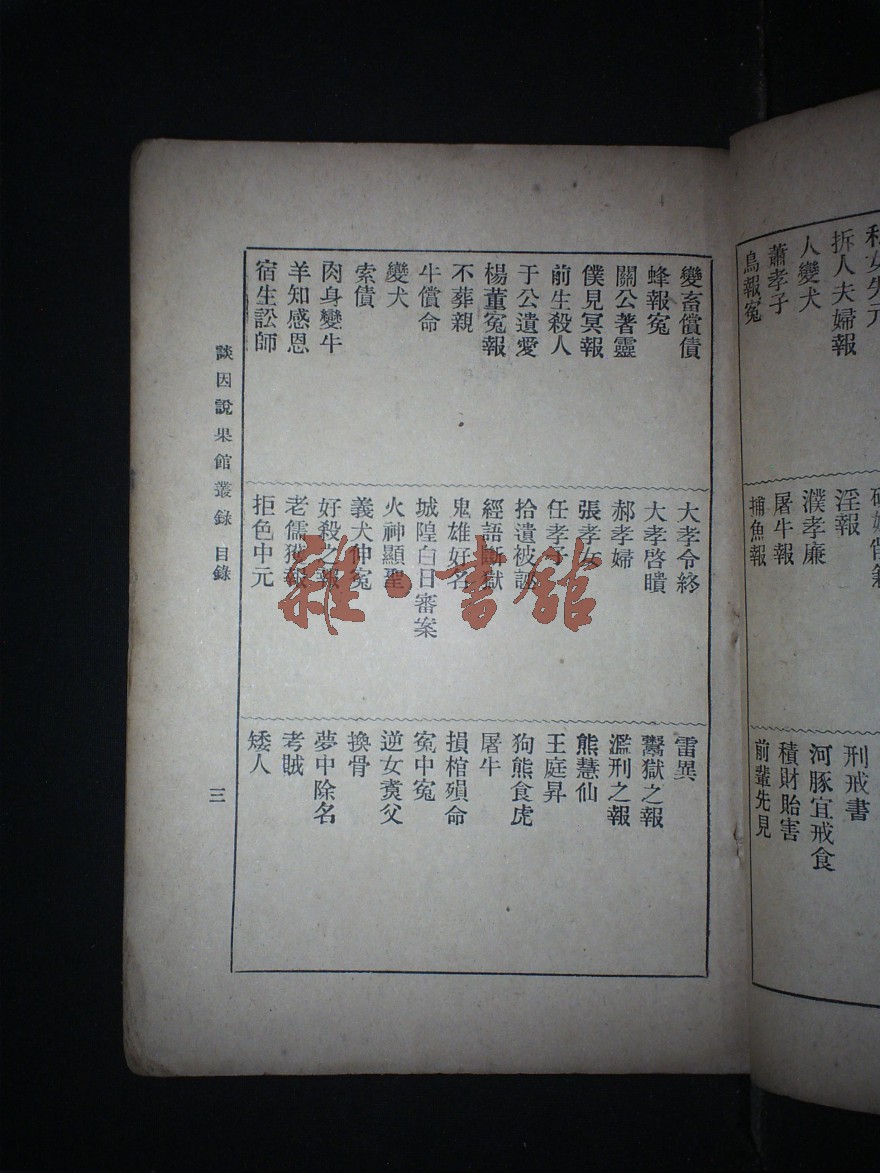 女失元
拆人夫婦報
人變犬
蕭孝子
鳥報冤
淫報
濮孝廉
屠牛報
捕魚報
刑戒書
河豚宜戒食
積財貽害
前輩先見
變畜償債
蜂報冤
關公著靈
僕見冥報
前生殺人
于公遺愛
楊董冤報
不葬親
牛償命
變犬
索債
肉身變牛
羊知感恩
宿生訟師
大孝令終
大孝啓聵
郝孝婦
張孝女
任孝子
拾遺被誣
經語斷獄
鬼雄好名
城隍白日審案
火神顯聖
義犬伸冤
好殺之報
老儒獲報
拒色中元
雷異
鬻獄之報
濫刑之報
熊慧仙
王庭昇
狗熊食虎
屠牛
損棺殞命
冤中冤
逆女父
換骨
夢中除名
考賊
矮人
談因說果館叢錄 目錄
三
雜·書館